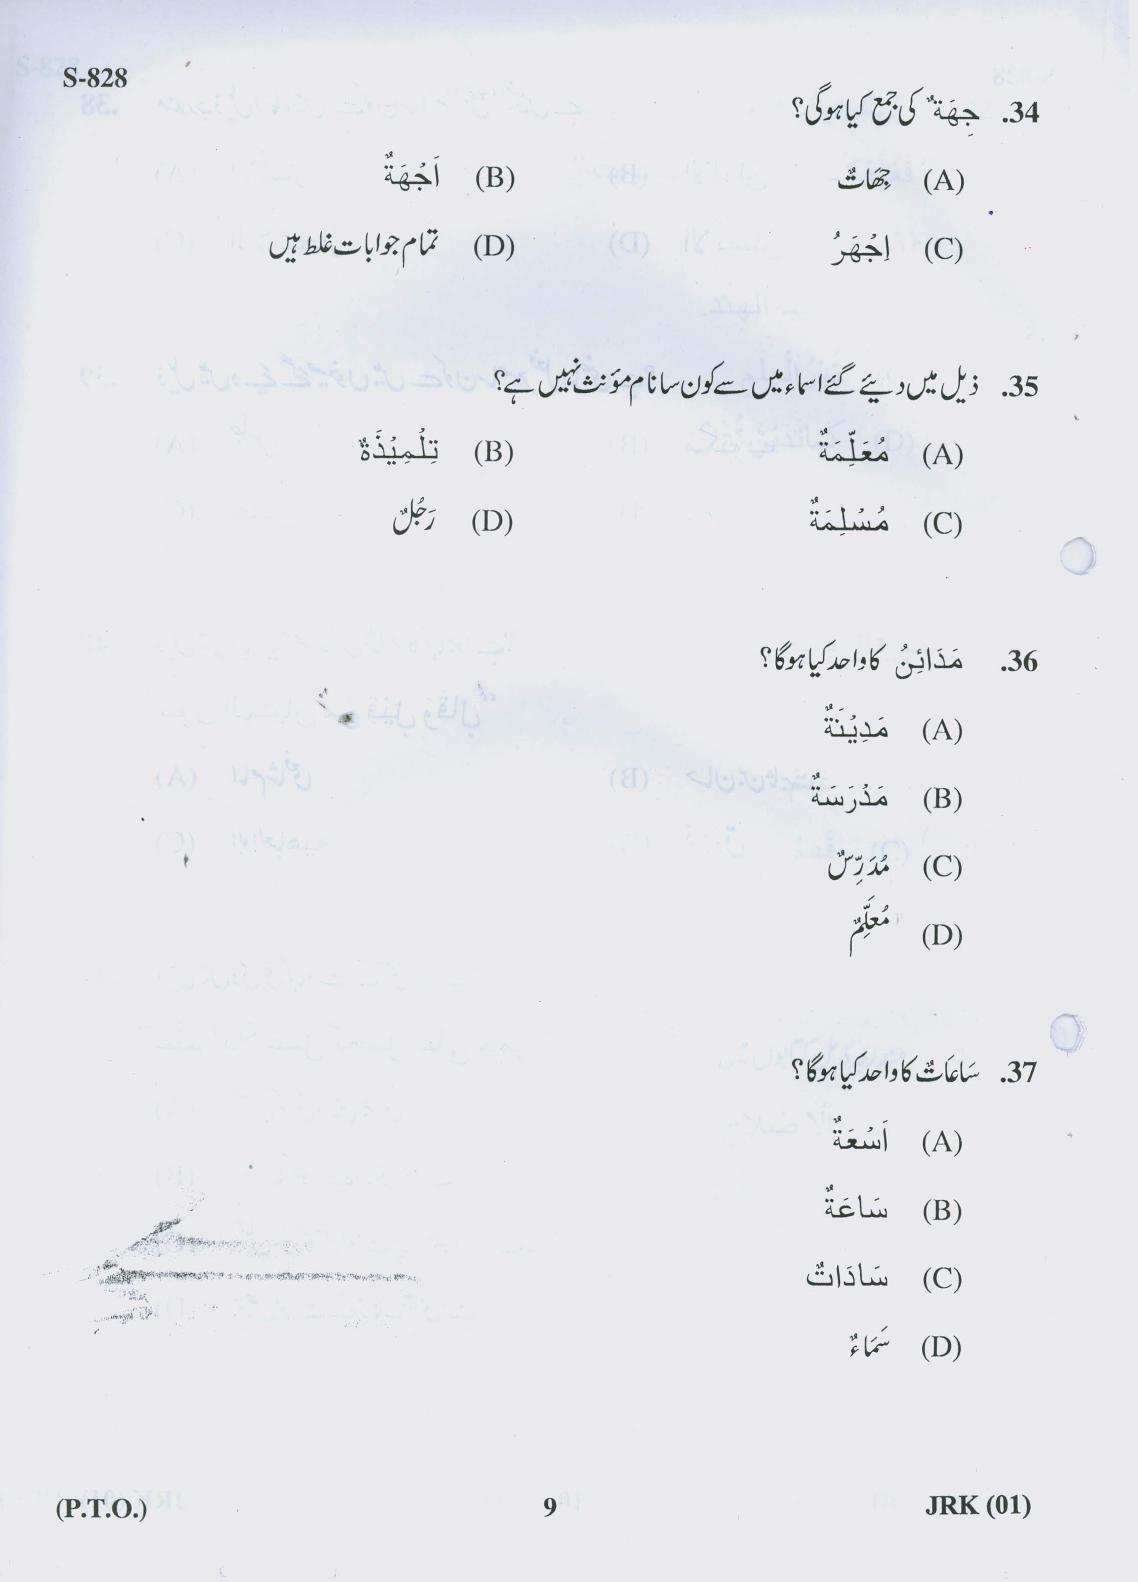 S-828
34. جِهَةٌ کی جمع کیا ہوگی؟
(A) جِهَاتٌ (B) اَجْهَةٌ
(C) اِجْهَرُ (D) تمام جوابات غلط ہیں
35. ذیل میں دیئے گئے اسماء میں سے کون سا نام مؤنث نہیں ہے؟
(A) مُعَلِّمَةٌ (B) تِلْمِيْذَةٌ
(C) مُسْلِمَةٌ (D) رَجُلٌ
36. مَدَائِنُ کا واحد کیا ہوگا؟
(A) مَدِيْنَةٌ
(B) مَدْرَسَةٌ
(C) مُدَرِّسٌ
(D) مُعَلِّمٌ
37. سَاعَاتٌ کا واحد کیا ہوگا؟
(A) اَسْعَةٌ
(B) سَاعَةٌ
(C) سَادَاتٌ
(D) سَمَاءٌ
(P.T.O.) 9 JRK (01)